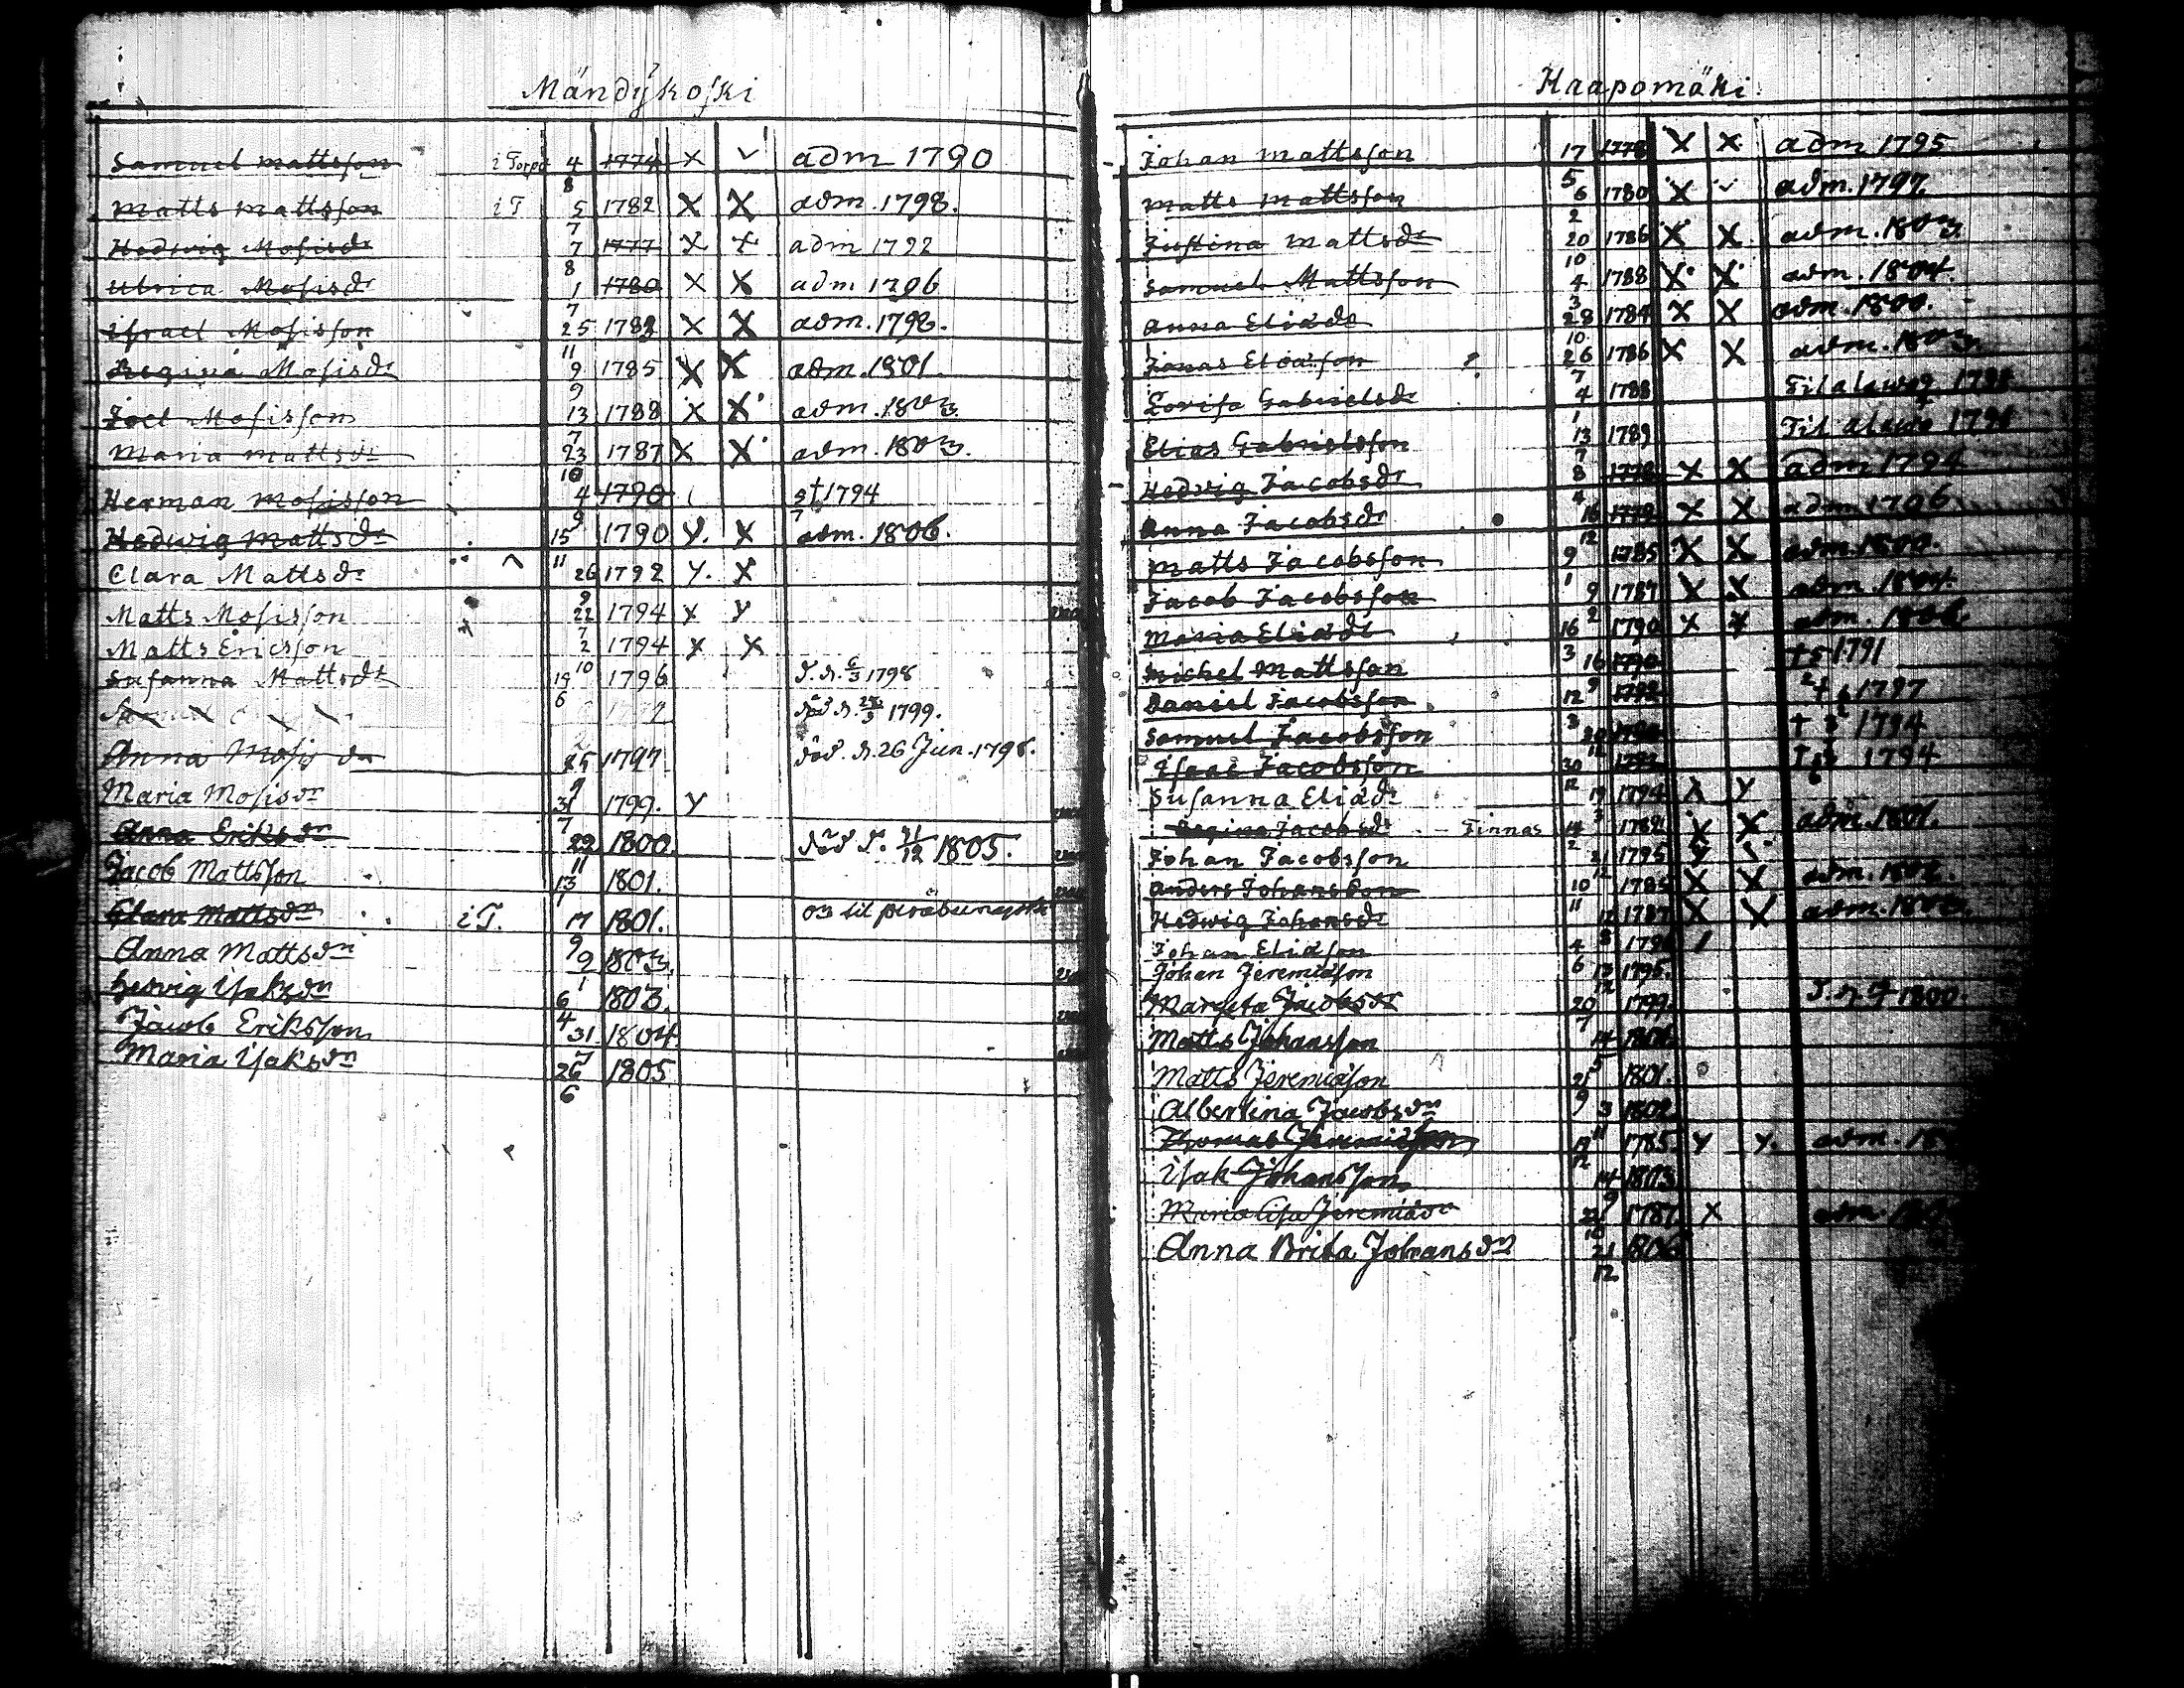 Mändÿkoski
Samuel Mattsson i Torpa 4 8 1774 x adm 1790
Matts Mattsson i T 5 7 1782 x x adm. 1798.
Hedwig Mosisdr 7 8 1777 x x adm 1792
Ulrica Mosisdr 1 7 1780 x x adm 1796
Israel Mosisson 25 11 1782 x x adm. 1798.
Regina Mosisdr 9 9 1785 x x adm. 1801.
Joel Mosisson 13 7 1788 x x adm. 1803.
Maria Mattsdr 23 10 1787 x x adm. 1803.
Herman Mosisson 4 9 1790 † 1794
Hedwig Mattsdr 15 11 1790 y. x adm. 1806.
Clara Mattsdr 26 9 1792 y. x
Matts Mosisson 22 7 1794 x y
Matts Ericsson 2 10 1794 x x
Susanna Mattsdr 19 6 1796 d. d. 6/3 1798
död d. 1799.
Anna Mosisdr 25 9 1797 död d. 26 Jun. 1798.
Maria Mosisdr 31 7 1799. y
Anna Eriksdr 29 11 1800. död d. 21/12 1805.
Jacob Mattsson 13 1 1801.
Clara Mattsdr i T. 17 9 1801.
Anna Mattsdr 9 1 1803.
Hedvig Isaksdr 6 4 1803.
Jacob Eriksson 31 7 1804
Maria Isaksdr 26 6 1805
Haapomäki
Johan Mattsson 17 5 1778 x x adm 1795
Matts Mattsson 6 2 1780 x adm. 1797.
Justina Mattsdr 20 10 1786 x x adm. 1803.
Samuel Mattsson 4 3 1788 x x adm. 1804.
Anna Eliædr 28 10 1784 x x adm. 1800.
Jonas Eliæson 26 7 1786 x x adm. 1803.
Lovisa Gabrielsdr 4 1 1788
Elias Gabrielsson 13 7 1789
Hedvig Jacobsdr 8 4 x x adm 1794
Anna Jacobsdr 16 12 1779 x x adm 1796
Matts Jacobsson 9 1 1785 x x adm. 1800.
Jacob Jacobsson 9 2 1787 x x adm. 1804.
Maria Eliædr 16 3 1790 x x adm. 1806.
Michel Mattsson 16 9 1790 † 1791
Daniel Jacobsson 12 3 1792 † 1797
Samuel Jacobsson 20 12 † 1794
Isaac Jacobsson 30 12 † 1794
Susanna Eliædr 19 3 1794 x y
Regina Jacobsdr Finnas 14 2 1782 x x adm. 1801.
Johan Jacobsson 21 12 1795 y
Anders Johansson 10 11 1785 x x adm. 1802.
Hedwig Johansdr 12 8 1787 x x adm. 1803.
Johan Eliæson 4 6
Johan Jeremiæson 13 12 1795.
Margeta Jacobsdr 20 7 1799. 1800.
Matts Johansson 14 5
Matts Jeremiæson 21 9 1801.
Albertina Jacobsdr 3 11 1802
Thomas Jeremiæson 12 1785. y y. adm.
Isak Johansson 14 9 1803
Maria Lisa Jeremiædr 22 10 1787 x adm.
Anna Brita Johansdr 21 12 1806